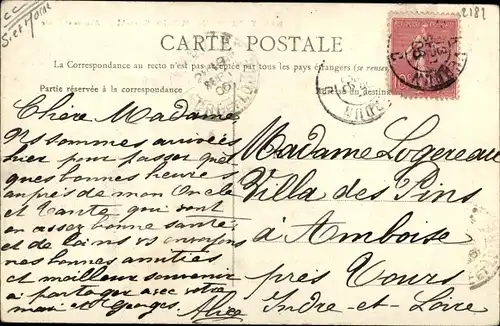 S.et Marne
2181
CARTE POSTALE
La Correspondance au recto n'est pas acceptée par tous les pays étrangers (se renseigner
Partie réservée à la correspondance
Chère Madame
Ns sommes arrivées
hier pour passer quel
ques bonnes heures
auprès de mon Oncle
et Tante qui sont
en assez bonne santé
et de loins vs envoyons
nos bonnes amitiés
et meilleur souvenir
à partager avec votre
mari et Georges Alice
Madame Logereau
Villa des Pins
à Amboise
près Tours
Indre-et-Loire